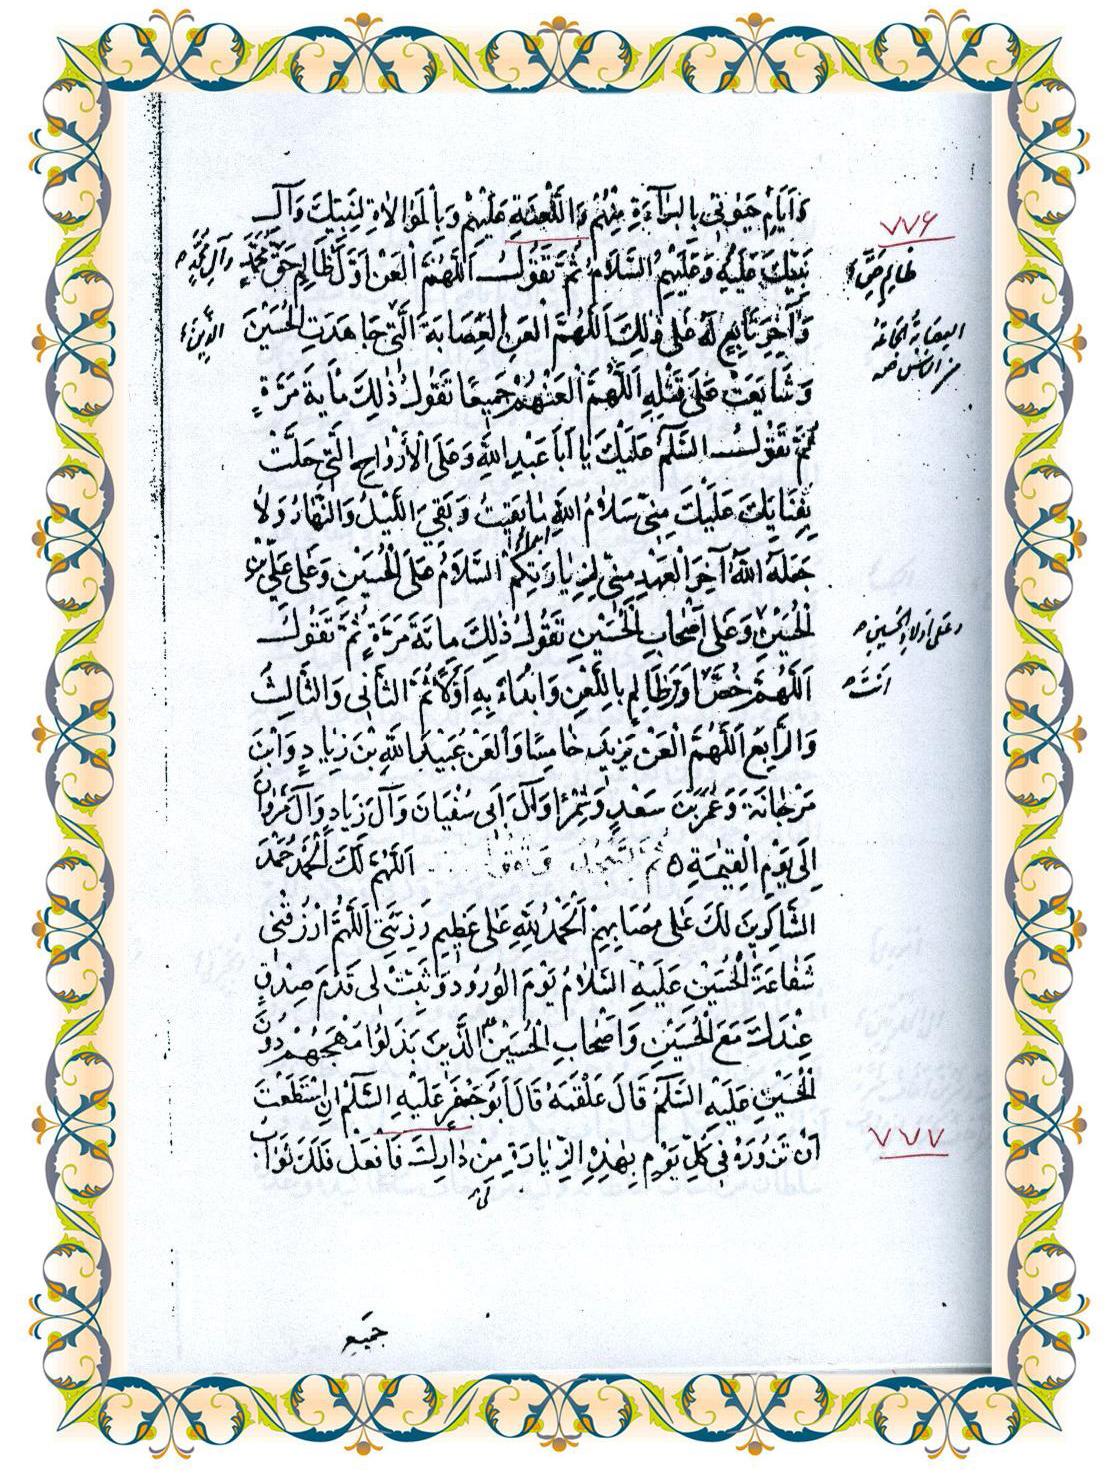 وَاَيَّامِ حَيٰوتي بِالبَرآءَةِ مِنْهُمْ وَاللَّعنَةِ عَلَيْهِمْ وَبِالْمَوُالاةِ لِنَبِيِّكَ وَآلِ
۷۷۶
نَبِيِّكَ عَلَيْهِ وَعَلَيْهِمُ السَّلَامُ ثُمَّ تَقُولُ اَللّٰهُمَّ الْعَنْ اَوَّلَ ظَالِمٍ ظَلَمَ حَقَّ مُحَمَّدٍ
وآل محمّدٍ
وَآخِرَ تَابِعٍ لَهُ عَلىٰ ذٰلِكَ اَللّٰهُمَّ الْعَنِ الْعِصَابَةَ الَّتي جَاهَدَتِ الْحُسَيْنَ
الّذين
وَشَايَعَتْ عَلىٰ قَتْلِهِ اَللّٰهُمَّ الْعَنْهُمْ جَميعًا تَقُولُ ذٰلِكَ مِأيَةَ مَرَّةٍ
ثُمَّ تَقُولُ السَّلٰمُ عَلَيْكَ يٰا اَبَا عَبْدِ اللّٰهِ وَعَلَى الْاَرْوٰاحِ الَّتي حَلَّتْ
بِفِنٰايِكَ عَلَيْكَ مِنّي سَلَامُ اللّٰهِ مٰا بَقيتُ وَبَقِيَ اللَّيْلُ وَالنَّهَارُ وَلا
جَعَلَهُ اللّٰهُ آخِرَ الْعَهْدِ مِنّي لِزِيَارَتِكُمْ السَّلَامُ عَلَى الْحُسَيْنِ وَعَلىٰ عَلِيِّ بْنِ
الْحُسَيْنِ وَعَلىٰ اَصْحَابِ الْحُسَيْنِ تَقُولُ ذٰلِكَ مِائَةَ مَرَّةٍ ثُمَّ تَقُولُ
وعلى اولاد الحسين
اَللّٰهُمَّ خُصَّ اَوَّلَ ظَالِمٍ بِاللَّعْنِ وَابْدَاءْ بِهِ اَوَّلًا ثُمَّ الثَّانى وَالثَّالِثَ
انت
وَالرَّابِعَ اَللّٰهُمَّ الْعَنْ يَزيدَ خٰامِسًا وَالْعَنْ عُبَيْدَ اللّٰهِ بْنَ زِيادٍ وَابْنَ
مَرْجٰانَةَ وَعُمَرَ بْنَ سَعْدٍ وَشِمْرًا وَآلَ اَبي سُفْيَانَ وَآلَ زِيَادٍ وَآلَ مَرْوٰانَ
اِلىٰ يَوْمِ الْقِيٰمَةِ ثُمَّ اَللّٰهُمَّ لَكَ الْحَمْدُ حَمْدَ
الشَّاكِرينَ لَكَ عَلىٰ مُصَابِهِمْ اَلْحَمْدُ لِلّٰهِ عَلىٰ عَظيمِ رَزِيَّتي اَللّٰهُمَّ ارْزُقْني
شَفَاعَةَ الْحُسَيْنِ عَلَيْهِ السَّلَامُ يَوْمَ الْوُرُودِ وَثَبِّتْ لي قَدَمَ صِدْقٍ
عِنْدَكَ مَعَ الْحُسَيْنِ وَاَصْحَابِ الْحُسَيْنِ الَّذينَ بَذَلُوا مُهَجَهُمْ دُونَ
الْحُسَيْنِ عَلَيْهِ السَّلٰمُ قَالَ عَلْقَمَةُ قَالَ اَبُو جَعْفَرٍ عَلَيْهِ السَّلٰمُ اِنِ اسْتَطَعْتَ
۷۷۷
اَنْ تَزُورَهُ في كُلِّ يَوْمٍ بِهٰذِهِ الزِّيَارَةِ مِنْ دٰارِكَ فَافْعَلْ فَلَكَ ثَوٰابُ
جَميعِ